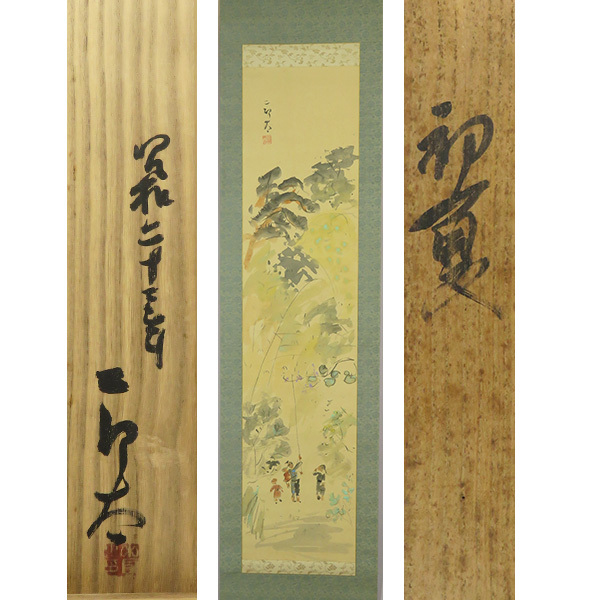 初夏
二郎太
昭和二十三年
二郎太